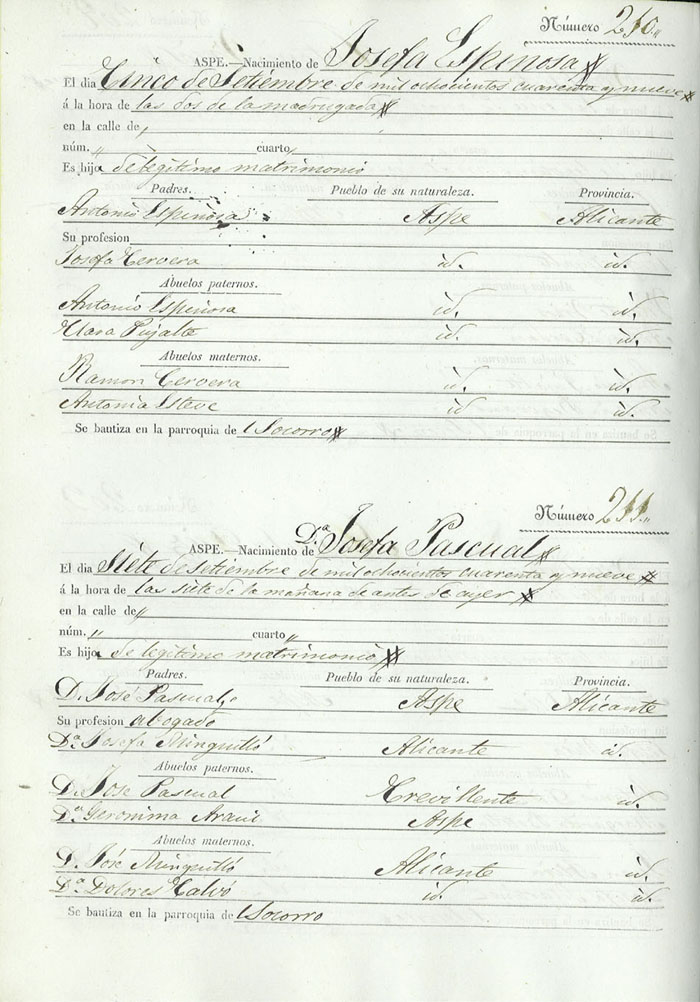 Número 210.
ASPE.—Nacimiento de Josefa Espinosa
El dia Cinco de Setiembre de mil ochocientos cuarenta y nueve
á la hora de las dos de la madrugada
en la calle de „
núm. „ cuarto „
Es hija de legitimo matrimonio
Padres. Pueblo de su naturaleza. Provincia.
Antonio Espinosa Aspe Alicante
Su profesion
Josefa Cervera id. id.
Abuelos paternos.
Antonio Espinosa id. id.
Clara Pujalte id. id.
Abuelos maternos.
Ramon Cervera id. id.
Antonia Esteve id id.
Se bautiza en la parroquia de Socorro
Número 211.
ASPE.—Nacimiento de D.ª Josefa Pascual
El dia Siete de Setiembre de mil ochocientos cuarenta y nueve
á la hora de las siete de la mañana de antes de ayer
en la calle de „
núm. „ cuarto „
Es hija de legitimo matrimonio
Padres. Pueblo de su naturaleza. Provincia.
D. José Pascual Aspe Alicante
Su profesion abogado
D.ª Josefa Minguilló Alicante id.
Abuelos paternos.
D. José Pascual Crevillente id.
D.ª Geronima Aspe
Abuelos maternos.
D. José Minguilló Alicante id.
D.ª Dolores Calvó id. id.
Se bautiza en la parroquia de Socorro